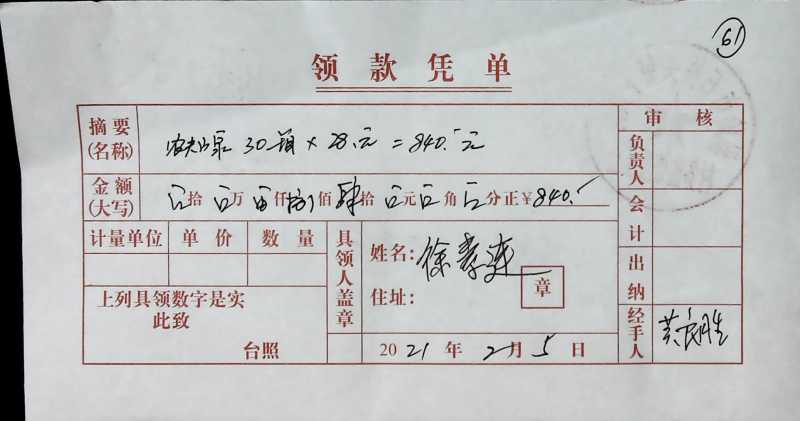 61
领款凭单
摘要(名称) 农夫山泉 30箱 × 28.元 = 840.元
审核
负责人
金额(大写) 拾 万 仟捌佰肆拾 元 角 分正¥840.
会计
计量单位 单价 数量
具领人盖章
姓名:徐孝莲
住址:
章
出纳
上列具领数字是实
此致
台照
2021年2月5日
经手人 胜